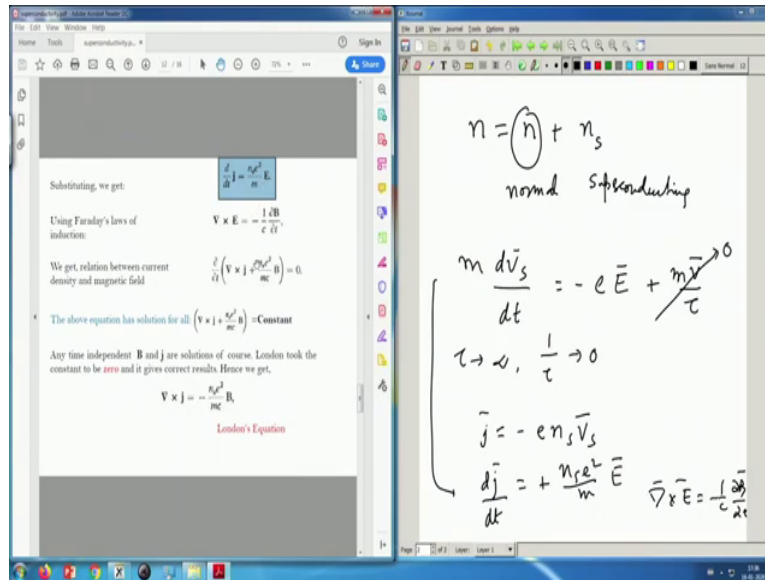 superconductivity.pdf - Adobe Acrobat Reader DC
File Edit View Window Help
Home Tools superconductivity.p... × Sign In
12 / 18 72% Share
Substituting, we get: d/dt j = n_s e²/m E
Using Faraday's laws of ∇ × E = −1/c ∂B/∂t,
induction:
We get, relation between current ∂/∂t (∇ × j + n_s e²/mc B) = 0.
density and magnetic field
The above equation has solution for all: (∇ × j + n_s e²/mc B) =Constant
Any time independent B and j are solutions of course. London took the
constant to be zero and it gives correct results. Hence we get,
∇ × j = − n_s e²/mc B,
London's Equation
Journal
File Edit View Journal Tools Options Help
Sans Normal 12
n = n + n_s
normal superconducting
m dv̄_s/dt = − e Ē + m v̄/τ → 0
τ → ∞, 1/τ → 0
j̄ = − e n_s v̄_s
dj̄/dt = + n_s e²/m Ē
∇̄ × Ē = −1/c ∂B̄/∂t
Page 2 of 2 Layer: Layer 1